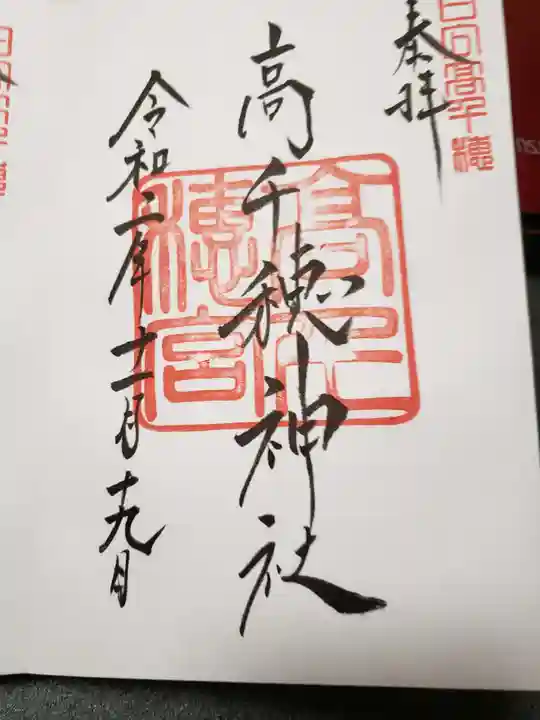 奉拝
日向高千穂
高千穂神社
高千穂宮
令和二年十一月十九日